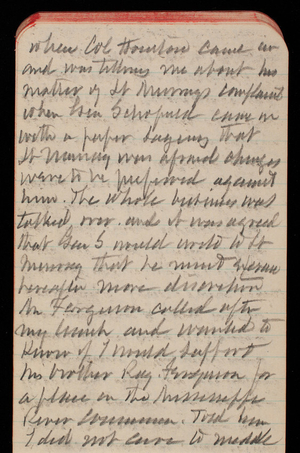 when Col Houston came in
and was telling me about his
matter of Lt Murrays complaint
when Gen Schofield came in
with a paper saying that
Lt Murray was afraid charges
were to be preferred against
him. The whole business was
talked over. and it was agreed
that Gen S would write to Lt
Murray that he must exercise
hereafter more discretion
Mr Ferguson called after
my lunch and wanted to
know if I would support
his brother Ray Ferguson for
a place on the Mississippi
River Commission. Told him
I did not care to meddle